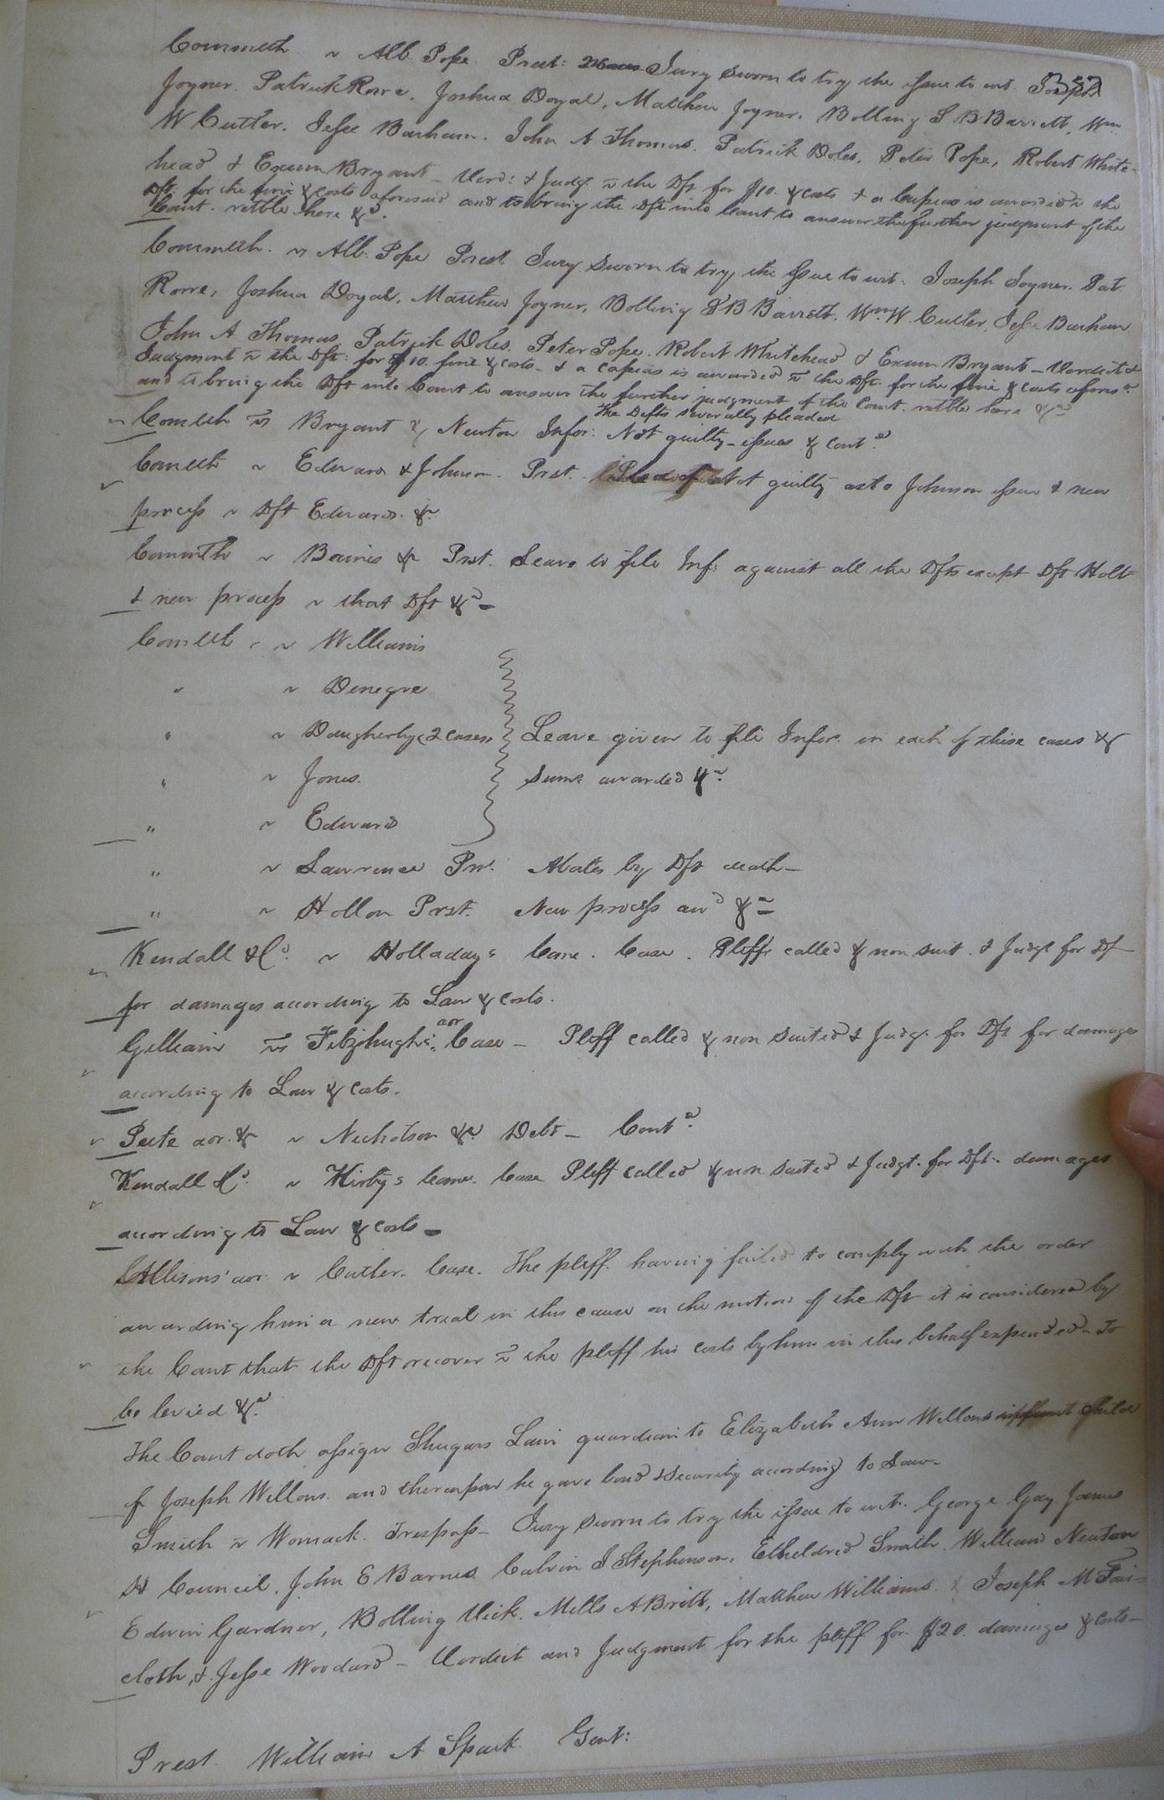 Commth v Alb Pope. Prest: Jury sworn to try the issue to wit. Joseph
Joyner. Patrick Rorre, Joshua Doyal, Matthew Joyner, Bolling S B Barrett, Wm
W Cutler. Jesse Barham. John A Thomas. Patrick Doles, Peter Pope, Robert White-
head & Exum Bryant – Verd: & Judgt v the Dft. for $10. & costs & a capias is awarded v the
Dft. for the fine & costs aforesaid and to bring the Dft into Court to answer the further judgment of the
Court. rettble here &c.
Commth. vs Alb: Pope Prest Jury sworn to try the issue to wit. Joseph Joyner. Pat
Rorre, Joshua Doyal, Matthew Joyner, Bolling S B Barrett. Wm W. Cutler, Jesse Barham
John A Thomas, Patrick Doles, Peter Pope. Robert Whitehead & Exum Bryant – Verdict &
Judgment v the Dft: for $10. fine & costs – & a capias is awarded v the Dft. for the fine & costs afores
and to bring the Dft into Court to answer the further judgment of the Court. rettble here &c
The Defts severally pleaded
Comth vs Bryant & Newton Infor: Not guilty – issues & contd
Comth v Edwards & Johnson. Prst. Plea of Not guilty as to Johnson issue & new
process v Dft Edwards. &c
Commth v Barnes &c Prst. Leave to file Inf: against all the Dfts except Dft Holt
& new process v that Dft &c –
Comth v Williams
" v Denegre
" v Daugherty (2 cases) Leave given to file Infor. in each of these cases &
" v Jones. Sums awarded &c.
" v Edwards
" v Lawrence Prs: Abates by Dft death –
" v Hollon Prst. New process awd &c
Kendall & Co. v Holladay's Case. Pliffs called & non suit. & Judgt for Df
for damages according to Law & costs.
Gilliam vs Fitzhugh's aor Case – Pliff called & non suited & Judgt. for Dft for damages
according to Law & costs.
Peete aor. &c v Nicholson &c Debt – Contd.
Kendall & Co. v Kirby's Case Pliff called & non suited & Judgt. for Dft. damages
according to Law & costs –
Allisons' aor v Cutler. Case. The pliff. having failed to comply with the order
awarding him a new trial in this cause on the motion of the Dft it is considered by
the Court that the Dft recover v the pliff his costs by him in this behalf expended – To
be levied &c.
The Court doth assign Shugars Lain guardian to Elizabeth Ann Wellons child
of Joseph Wellons. and thereupon he gave bond & Security according to Law –
Smith v Womack. Trespass – Jury sworn to try the issue to wit. George Gay James
H Council, John E Barnes Calvin J Stephenson, Etheldred Smith. William Newton
Edwin Gardner, Bolling Vick. Mills A Britt, Matthew Williams. & Joseph M Fai-
cloth, & Jesse Woodard – Verdict and Judgment for the pliff for $20. damages & costs –
Prest William A Spark Gent: